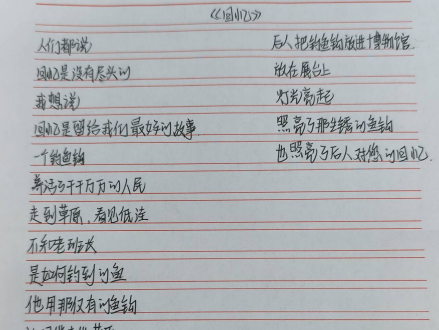 《回忆》
人们都说
回忆是没有尽头的
我想说
回忆是留给我们最好的故事.
一个钓鱼钩
养活了千千万万的人民
走到草原、看见低洼
不知老班长
是如何钓到的鱼
他用那仅有的鱼钩
后人把钓鱼钩放进博物馆.
放在展台上
灯光亮起
照亮了那生锈的鱼钩
也照亮了后人对您的回忆.